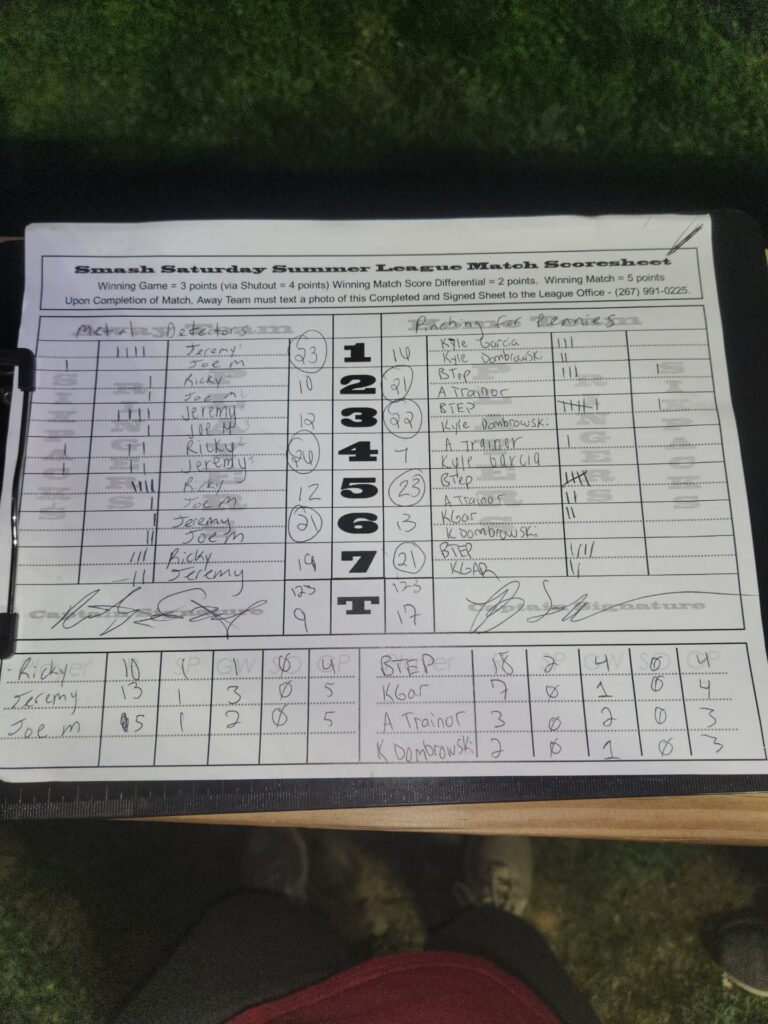 Smash Saturday Summer League Match Scoresheet
Winning Game = 3 points (via Shutout = 4 points) Winning Match Score Differential = 2 points. Winning Match = 5 points
Upon Completion of Match, Away Team must text a photo of this Completed and Signed Sheet to the League Office - (267) 991-0225.
Metal Detectors Pinching for Pennies
Jeremy 23 1 16 Kyle Garcia
Joe M Kyle Dombrowski
Ricky 10 2 21 BTep
Joe M A Trainor
Jeremy 12 3 22 BTEP
Joe M Kyle Dombrowski
Ricky 26 4 7 A Trainor
Jeremy Kyle Garcia
Ricky 12 5 23 BTep
Joe M A Trainor
Jeremy 21 6 13 KGar
Joe M K Dombrowski
Ricky 19 7 21 BTEP
Jeremy KGAR
123 T 123
Captain Signature 9 17 Captain Signature
Ricky 10 1 1 0 4 BTEP 18 2 4 0 4
Jeremy 13 1 3 0 5 KGar 7 0 1 0 4
Joe M 5 1 2 0 5 A Trainor 3 0 2 0 3
K Dombrowski 2 0 1 0 3